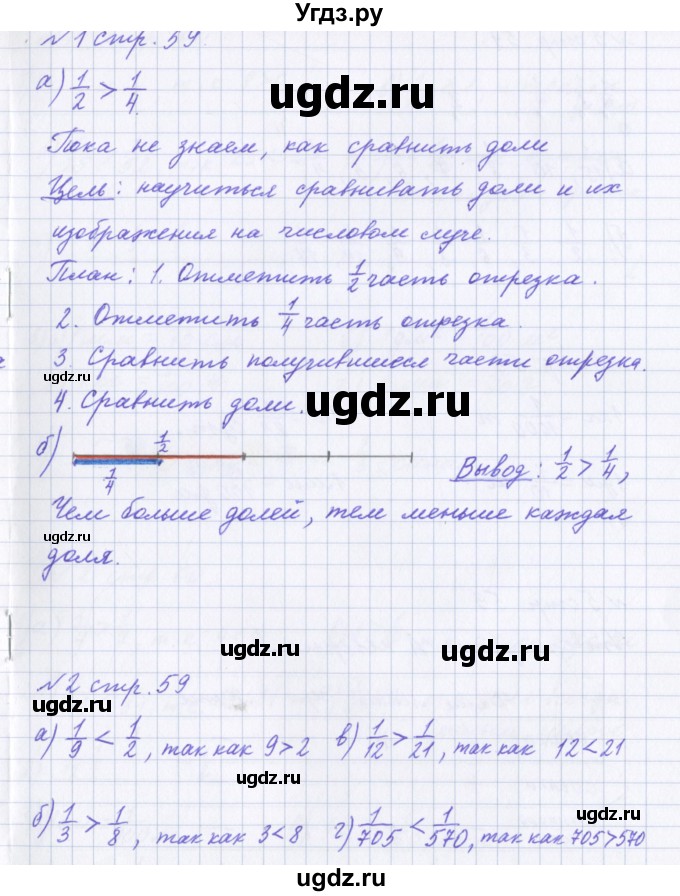 Угдз.ру
№1 стр. 59.
а) 1/2 > 1/4.
ugdz.ru
Пока не знаем, как сравнить доли
Цель: научиться сравнивать доли и их
изображения на числовом луче.
План: 1. Отметить 1/2 часть отрезка.
2. Отметить 1/4 часть отрезка.
3. Сравнить получившиеся части отрезка.
ugdz.ru
4. Сравнить доли.
ugdz.ru
б) 1/2
1/4
Вывод: 1/2 > 1/4,
Чем больше долей, тем меньше каждая
ugdz.ru
доля.
ugdz.ru
ugdz.ru
№2 стр. 59
ugdz.ru
а) 1/9 < 1/2, так как 9>2 в) 1/12 > 1/21, так как 12<21
ugdz.ru
ugdz.ru
б) 1/3 > 1/8, так как 3<8 г) 1/705 < 1/570, так как 705>570
ugdz.ru
ugdz.ru